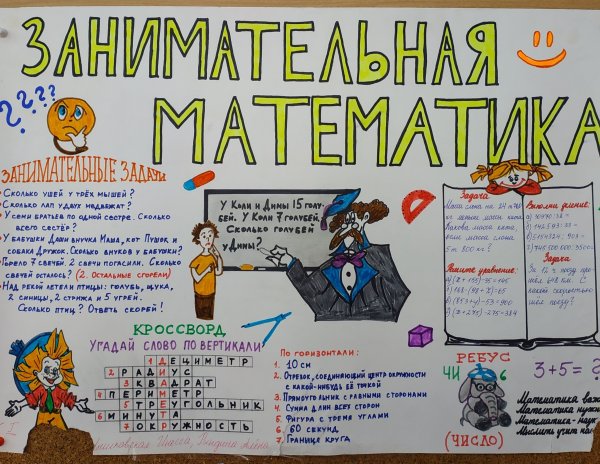 ЗАНИМАТЕЛЬНАЯ
МАТЕМАТИКА
????
ЗАНИМАТЕЛЬНЫЕ ЗАДАЧИ
Сколько ушей у трёх мышей?
Сколько лап у двух медвежат?
У семи братьев по одной сестре. Сколько
всего сестёр?
У бабушки Даши внучка Маша, кот Пушок и
собака Дружок. Сколько внуков у бабушки?
Горело 7 свечей. 2 свечи погасили. Сколько
свечей осталось? (2. Остальные сгорели)
Над рекой летели птицы: голубь, щука,
2 синицы, 2 стрижа и 5 угрей.
Сколько птиц? Ответь скорей!
У Коли и Дины 15 голу-
бей. У Коли 7 голубей.
Сколько голубей
у Дины?
Задача
Масса слона на 24
масса
масса слона
800 кг?
Решите уравнение:
Выполни деление:
Задача
За 12 ч поезд про-
шёл
С какой скоростью
шёл поезд?
КРОССВОРД
УГАДАЙ СЛОВО ПО ВЕРТИКАЛИ!
1 ДЕЦИМЕТР
2 РАДИУС
3 КВАДРАТ
4 ПЕРИМЕТР
5 ТРЕУГОЛЬНИК
6 МИНУТА
7 ОКРУЖНОСТЬ
По горизонтали:
1. 10 см
2. Отрезок, соединяющий центр окружности
с какой-нибудь её точкой
3. Прямоугольник с равными сторонами
4. Сумма длин всех сторон
5. Фигура с тремя углами
6. 60 секунд
7. Граница круга
РЕБУС
ЧИ
6
(ЧИСЛО)
3+5=?
Математика
Математика
Математика - наук
Мыслить учит нас